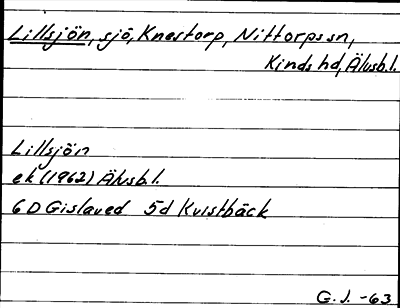 Lillsjön, sjö, Knestorp, Nittorps sn,
Kinds hd, Älvsb.l.
Lillsjön
ek (1962) Älvsb.l.
6D Gislaved 5d Kvistbäck
G.J. -63